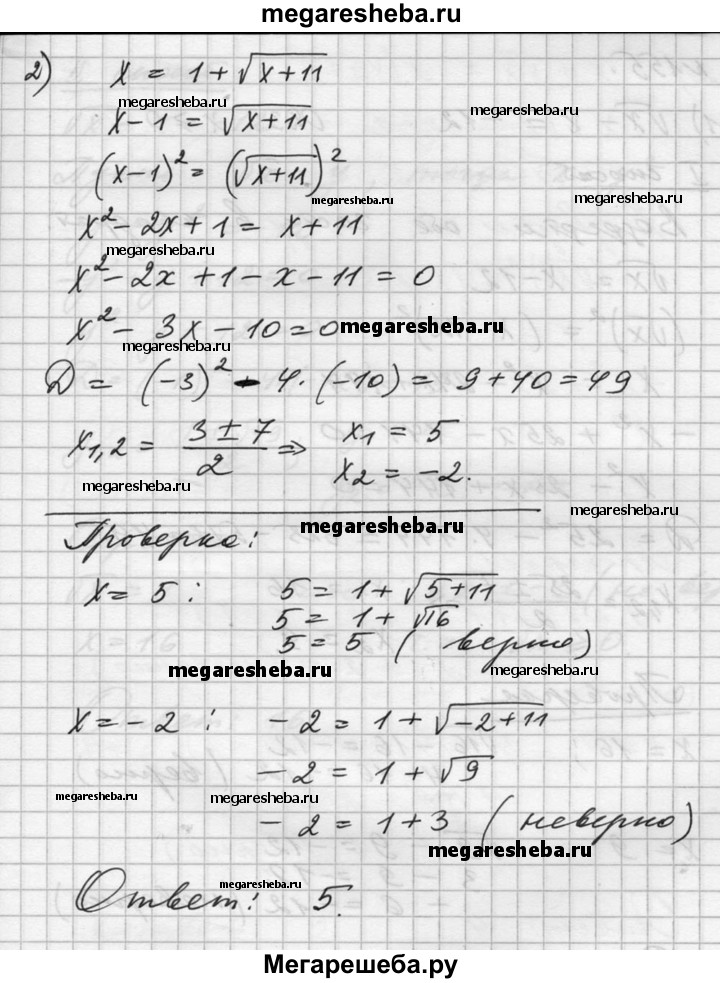 megaresheba.ru
2) x = 1 + √(x+11)
megaresheba.ru
megaresheba.ru
x - 1 = √(x+11)
(x-1)² = (√(x+11))²
megaresheba.ru
x² - 2x + 1 = x + 11
megaresheba.ru
x² - 2x + 1 - x - 11 = 0
x² - 3x - 10 = 0
megaresheba.ru
megaresheba.ru
D = (-3)² - 4·(-10) = 9 + 40 = 49
x₁,₂ = (3 ± 7)/2 ⇒ x₁ = 5
x₂ = -2.
megaresheba.ru
megaresheba.ru
Проверка:
megaresheba.ru
x = 5 : 5 = 1 + √(5+11)
5 = 1 + √16
5 = 5 (верно)
megaresheba.ru
megaresheba.ru
x = -2 : -2 = 1 + √(-2+11)
-2 = 1 + √9
megaresheba.ru
megaresheba.ru
-2 = 1 + 3 (неверно)
megaresheba.ru
megaresheba.ru
Ответ: 5.
Мегарешеба.ру